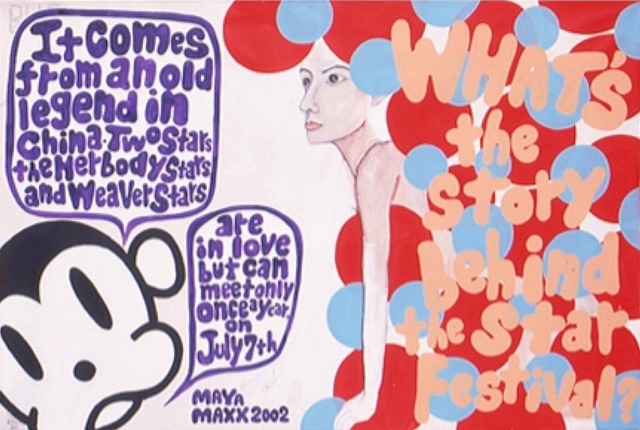 It comes
from an old
legend in
China. Two Stars
the Herbody Stars
and Weaver Stars
are
in love
but can
meet only
once a year,
on
July 7th
MAYA
MAXX 2002
WHAT'S
the
story
behind
the star
Festival?